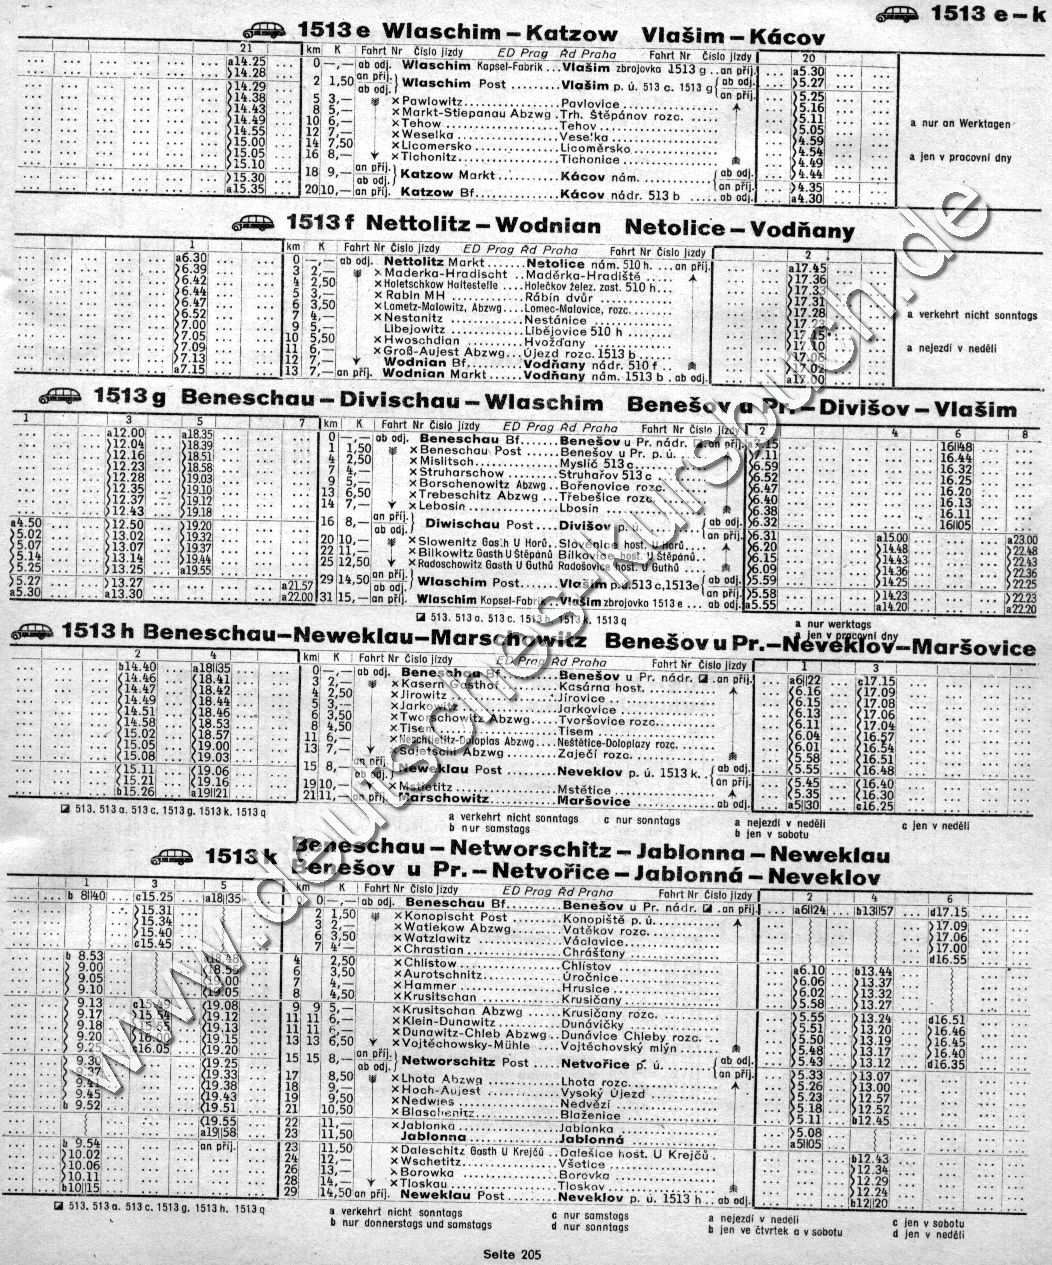 1513 e – k
1513 e Wlaschim – Katzow Vlašim – Kácov
21 km K Fahrt Nr Číslo jízdy ED Prag Řd Praha Fahrt Nr Číslo jízdy 20
a14.25 0 –,– ab odj. Wlaschim Kapsel-Fabrik Vlašim zbrojovka 1513 g an příj. a5.30
14.28 an příj. ab odj. 5.27
14.29 2 1,50 ab odj. Wlaschim Post Vlašim p. ú. 513 c. 1513 g an příj. 5.25
14.38 5 3,– × Pawlowitz Pavlovice 5.16
14.43 8 5,– × Markt-Stiepanau Abzwg Trh. Štěpánov rozc. 5.11
14.49 10 6,– × Tehow Tehov 5.05
14.55 12 7,– × Weselka Veselka 4.59
15.00 14 7,50 × Licomersko Licoměrsko 4.54
15.05 16 8,– × Tichonitz Tichonice 4.49
15.10 18 9,– an příj. Katzow Markt Kácov nám. ab odj. 4.44
15.30 ab odj. an příj. 4.35
a15.35 20 10,– an příj. Katzow Bf. Kácov nádr. 513 b ab odj. a4.30
a nur an Werktagen
a jen v pracovní dny
1513 f Nettolitz – Wodnian Netolice – Vodňany
1 km K Fahrt Nr Číslo jízdy ED Prag Řd Praha Fahrt Nr Číslo jízdy 2
a6.30 0 –,– ab odj. Nettolitz Markt Netolice nám. 510 h. an příj. a17.45
6.39 3 2,– × Maderka-Hradischt Maděrka-Hradiště 17.36
6.42 4 2,50 × Holetschkow Haltestelle Holečkov želez. zast. 510 h 17.33
6.44 5 3,– × Rabin MH Rábín dvůr 17.31
6.47 6 3,50 × Lometz-Malowitz, Abzwg Lomec-Malovice, rozc. 17.28
6.52 7 4,– × Nestanitz Nestánice
7.00 9 5,– Libejowitz Libějovice 510 h 17.15
7.05 10 5,50 × Hwoschdian Hvožďany 17.10
7.09 11 6,– × Groß-Aujest Abzwg Újezd rozc. 1513 b 17.06
7.13 12 7,– Wodnian Bf. Vodňany nádr. 510 f 17.02
a7.15 13 7,– an příj. Wodnian Markt Vodňany nám. 1513 b ab odj. a17.00
a verkehrt nicht sonntags
a nejezdí v neděli
1513 g Beneschau – Divischau – Wlaschim Benešov u Pr. – Divišov – Vlašim
1 3 5 7 km K Fahrt Nr Číslo jízdy ED Prag Řd Praha Fahrt Nr Číslo jízdy 2 4 6 8
a12.00 a18.35 0 –,– ab odj. Beneschau Bf. Benešov u Pr. nádr. an příj. a7.15 16||48
12.04 18.39 1 1,50 × Beneschau Post Benešov u Pr. p. ú. 7.11 16.44
12.16 18.51 4 2,50 × Mislitsch Myslíč 513 c 6.59 16.32
12.23 18.58 7 4,– × Struharschow Struhařov 513 c 6.52 16.25
12.28 19.03 9 5,– × Borschenowitz Abzwg Bořenovice rozc. 6.47 16.20
12.35 19.10 13 6,50 × Trebeschitz Abzwg Třebešice rozc. 6.40 16.13
12.37 19.12 14 7,– × Lebosin Lbosín 6.38 16.11
12.43 19.18 16 8,– an příj. Diwischau Post Divišov p. ú. ab odj. 6.32 16||05
a4.50 12.50 19.20 ab odj. an příj. 6.31 a15.00 a23.00
5.02 13.02 19.32 20 10,– × Slowenitz Gasth U Horů Slověnice host. U Horů 6.20 14.48 22.48
5.07 13.07 19.37 22 11,– × Bilkowitz Gasth U Štěpánů Bílkovice host. U Štěpánů 6.15 14.43 22.43
5.14 13.14 19.44 25 12,50 × Radoschowitz Gasth U Guthů Radošovice host. U Guthů 6.09 14.36 22.36
5.25 13.25 a19.55 29 14,50 an příj. Wlaschim Post Vlašim p. ú. 513 c, 1513 e ab odj. 5.59 14.25 22.25
5.27 13.27 a21.57 ab odj. an příj. 5.58 14.23 22.23
a5.30 a13.30 a22.00 31 15,– an příj. Wlaschim Kapsel-Fabrik Vlašim zbrojovka 1513 e ab odj. a5.55 a14.20 a22.20
513. 513 a. 513 c. 1513 h. 1513 k. 1513 q
a nur werktags
a jen v pracovní dny
1513 h Beneschau–Neweklau–Marschowitz Benešov u Pr.–Neveklov–Maršovice
2 4 km K Fahrt Nr Číslo jízdy ED Prag Řd Praha Fahrt Nr Číslo jízdy 1 3
b14.40 a18||35 0 –,– ab odj. Beneschau Bf. Benešov u Pr. nádr. an příj. a6||22 c17.15
14.46 18.41 3 2,– × Kasern Gasthof Kasárna host. 6.16 17.09
14.47 18.42 4 2,50 × Jirowitz Jírovice 6.15 17.08
14.49 18.44 5 3,– × Jarkowitz Jarkovice 6.13 17.06
14.51 18.46 6 3,50 × Tworschowitz Abzwg Tvoršovice rozc. 6.11 17.04
14.58 18.53 8 4,50 × Tisem Tisem 6.04 16.57
15.02 18.57 11 6,– × Neschtietitz-Doloplas Abzwg Neštětice-Doloplazy rozc. 6.01 16.54
15.05 19.00 13 7,– × Sajetschi Abzwg Zaječí rozc. 5.58 16.51
15.08 19.03 15 8,– an příj. Neweklau Post Neveklov p. ú. 1513 k. ab odj. 5.55 16.48
15.11 19.06 ab odj. an příj. 5.45 16.40
15.21 19.16 19 10,– × Mstietitz Mstětice 5.35 16.30
b15.26 a19||21 21 11,– an příj. Marschowitz Maršovice ab odj. a5||30 c16.25
513. 513 a. 513 c. 1513 g. 1513 k. 1513 q
a verkehrt nicht sonntags c nur sonntags a nejezdí v neděli c jen v neděli
b nur samstags b jen v sobotu
1513 k Beneschau – Networschitz – Jablonna – Neweklau
Benešov u Pr. – Netvořice – Jablonná – Neveklov
1 3 5 km K Fahrt Nr Číslo jízdy ED Prag Řd Praha Fahrt Nr Číslo jízdy 2 4 6
b 8||40 c15.25 a18||35 0 –,– ab odj. Beneschau Bf. Benešov u Pr. nádr. an příj. a6||24 b13||57 d17.15
15.31 2 1,50 × Konopischt Post Konopiště p. ú. 17.09
15.34 3 2,– × Watiekow Abzwg Vatěkov rozc. 17.06
15.40 6 3,50 × Watzlawitz Václavice 17.00
c15.45 7 4,– × Chrastian Chrášťany d16.55
b 8.53 18.48 4 2,50 × Chlistow Chlístov a6.10 b13.44
9.00 18.55 6 3,50 × Aurotschnitz Úročnice 6.06 13.37
9.05 19.00 7 4,– × Hammer Hrusice 6.02 13.32
9.10 19.05 8 4,50 × Krusitschan Krusičany 5.58 13.27
9.13 c15.49 19.08 9 9 5,– × Krusitschan Abzwg Krusičany rozc. 5.55 13.24 d16.51
9.17 15.54 19.12 11 11 6,– × Klein-Dunawitz Dunávičky 5.51 13.20 16.46
9.18 15.55 19.13 11 11 6,– × Dunawitz-Chleb Abzwg Dunávice Chleby rozc. 5.50 13.19 16.45
9.20 16.00 19.15 13 13 6,50 × Vojtěchowsky-Mühle Vojtěchovský mlýn 5.48 13.17 16.40
9.25 16.05 19.20 15 15 8,– an příj. Networschitz Post Netvořice p. ú. ab odj. 5.43 13.12 d16.35
9.30 19.25 ab odj. an příj. 5.33 13.07
9.37 19.33 17 8,50 × Lhota Abzwg Lhota rozc. 5.26 13.00
9.41 19.38 18 9,– × Hoch-Aujest Vysoký Újezd 5.23 12.57
9.45 19.43 19 9,50 × Nedwies Nedvězí 5.18 12.52
b 9.52 19.51 21 10,50 × Blaschenitz Blaženice 5.11 b12.45
19.55 22 11,– × Jablonka Jablonka 5.08
a19||58 23 11,50 Jablonna Jablonná a5||05
b 9.54 an příj. 23 11,50 × Daleschitz Gasth U Krejčů Dalešice host. U Krejčů b12.43
10.02 24 12,– × Wschetitz Všetice 12.34
10.06 26 13,– × Borowka Borovka 12.29
10.11 28 14,– × Tloskau Tloskov 12.24
b10||15 29 14,50 an příj. Neweklau Post Neveklov p. ú. 1513 h ab odj. b12||20
513. 513 a. 513 c. 1513 g. 1513 h. 1513 q
a verkehrt nicht sonntags c nur samstags a nejezdí v neděli c jen v sobotu
b nur donnerstags und samstags d nur sonntags b jen ve čtvrtek a v sobotu d jen v neděli
Seite 205
www.deutsches-kursbuch.de